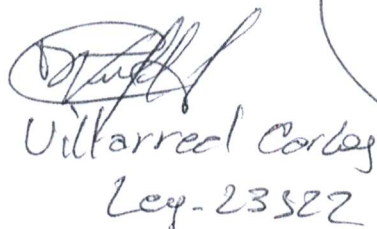 Villarreal Carlos
Leg-23522